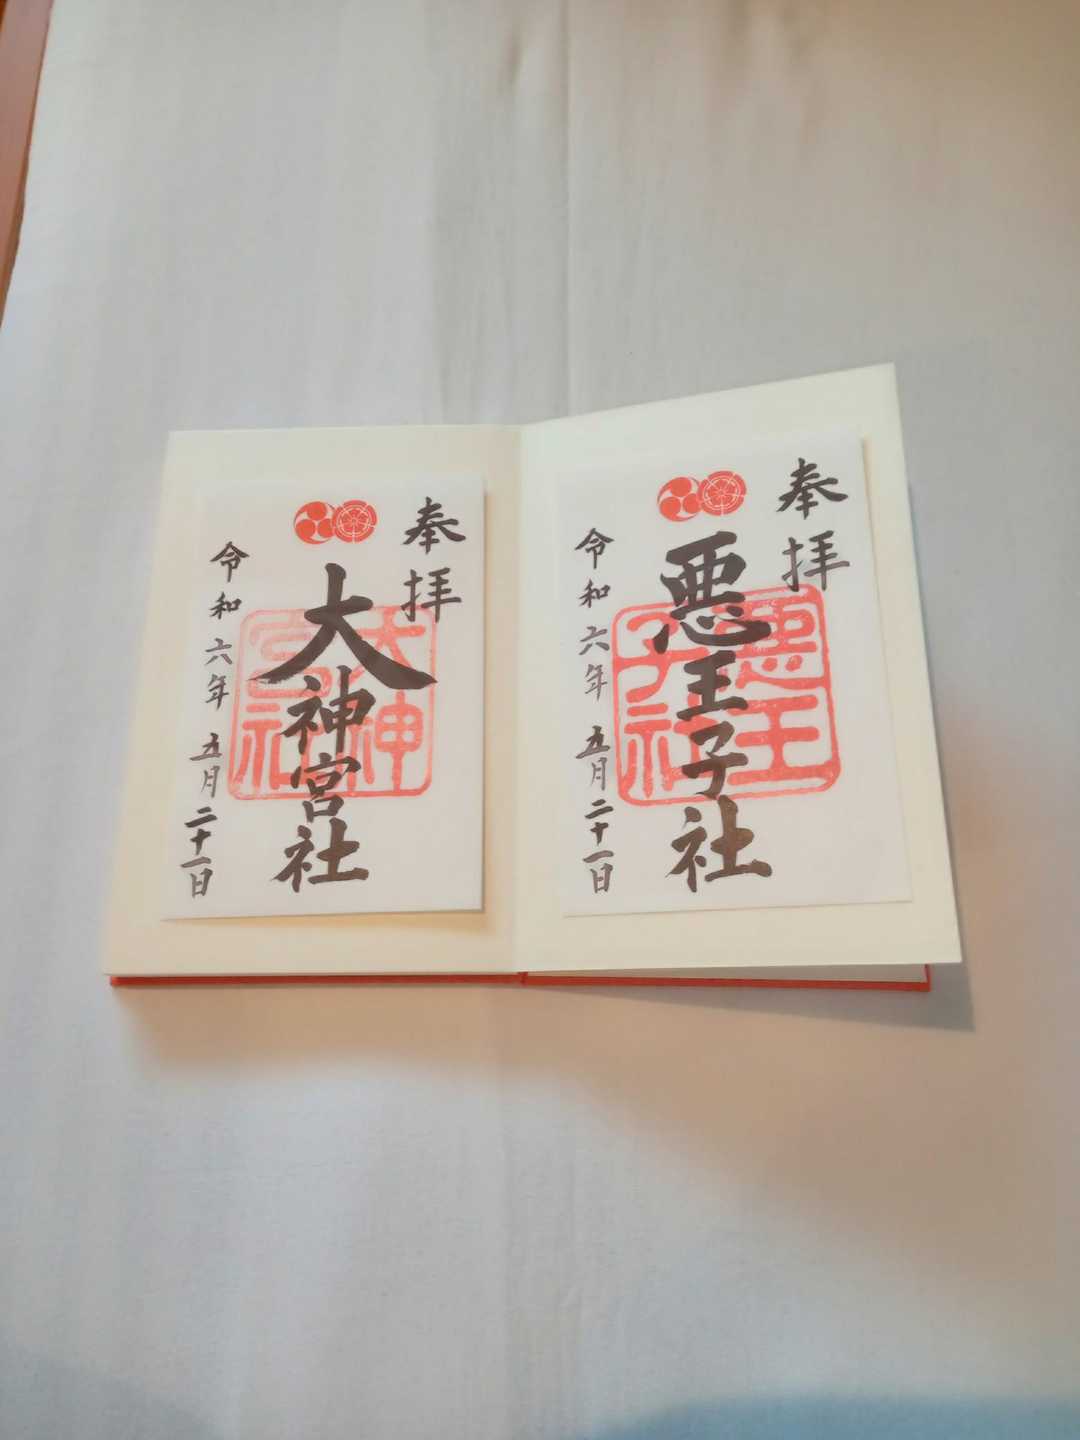 奉拝
悪王子社
悪王子社
令和六年 五月二十一日
奉拝
大神宮社
大神宮社
令和六年 五月二十一日